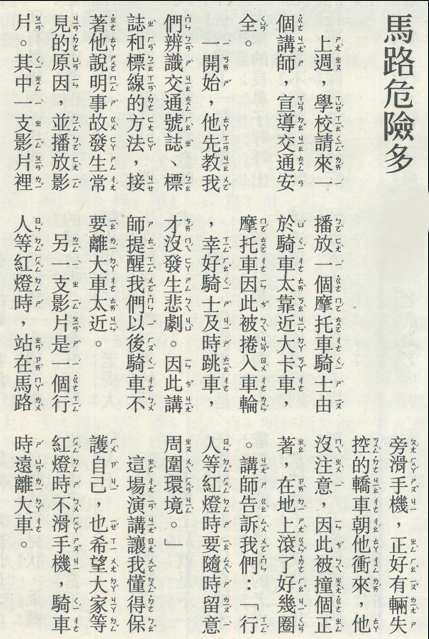 馬路危險多
上週，學校請來一
個講師，宣導交通安
全。
一開始，他先教我
們辨識交通號誌、標
誌和標線的方法，接
著他說明事故發生常
見的原因，並播放影
片。其中一支影片裡
播放一個摩托車騎士由
於騎車太靠近大卡車，
摩托車因此被捲入車輪
，幸好騎士及時跳車，
才沒發生悲劇。因此講
師提醒我們以後騎車不
要離大車太近。
另一支影片是一個行
人等紅燈時，站在馬路
旁滑手機，正好有輛失
控的轎車朝他衝來，他
沒注意，因此被撞個正
著，在地上滾了好幾圈
。講師告訴我們：「行
人等紅燈時要隨時留意
周圍環境。」
這場演講讓我懂得保
護自己，也希望大家等
紅燈時不滑手機，騎車
時遠離大車。